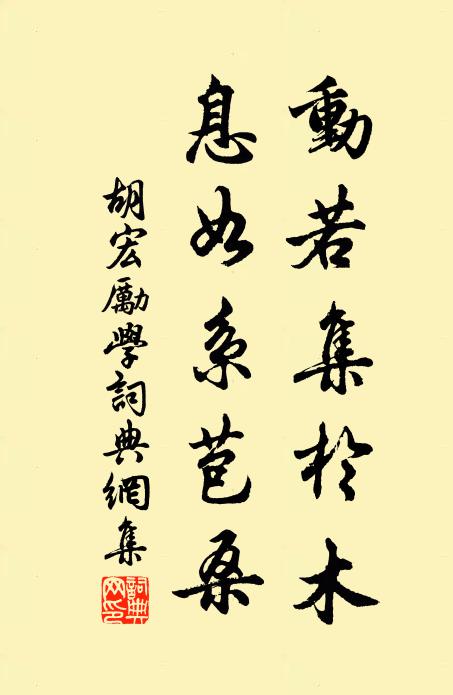 動若集於木
息如系苞桑
胡宏勵學詞典網集
詞典網印